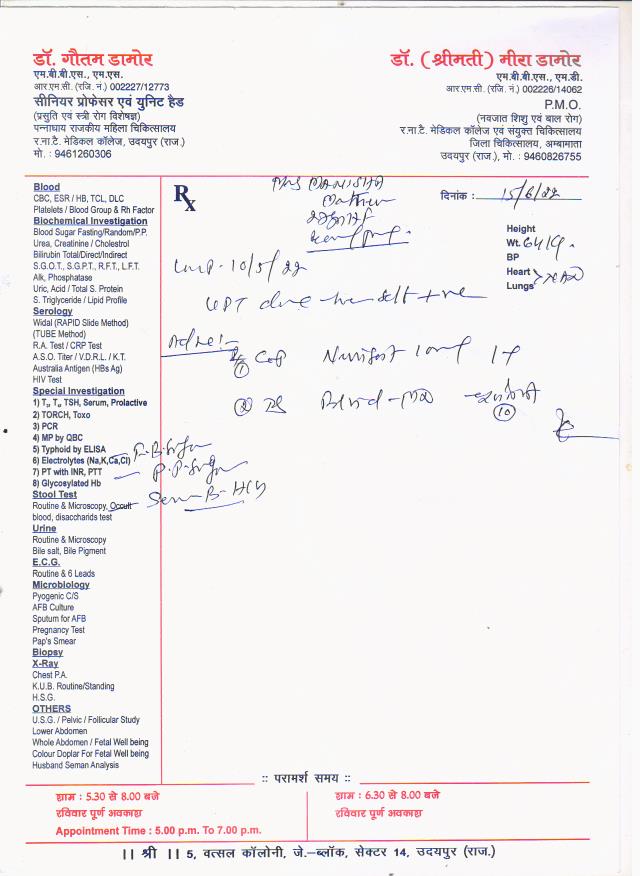 डॉ. गौतम डामोर
एम.बी.बी.एस., एम.एस.
आर.एम.सी. (रजि. नं.) 002227/12773
सीनियर प्रोफेसर एवं युनिट हैड
(प्रसुति एवं स्त्री रोग विशेषज्ञ)
पन्नाधाय राजकीय महिला चिकित्सालय
र.ना.टै. मेडिकल कॉलेज, उदयपुर (राज.)
मो. : 9461260306
डॉ. (श्रीमती) मीरा डामोर
एम.बी.बी.एस., एम.डी.
आर.एम.सी. (रजि. नं.) 002226/14062
P.M.O.
(नवजात शिशु एवं बाल रोग)
र.ना.टै. मेडिकल कॉलेज एवं संयुक्त चिकित्सालय
जिला चिकित्सालय, अम्बामाता
उदयपुर (राज.), मो. : 9460826755
Blood
CBC, ESR / HB, TCL, DLC
Platelets / Blood Group & Rh Factor
Biochemical Investigation
Blood Sugar Fasting/Random/P.P.
Urea, Creatinine / Cholestrol
Bilirubin Total/Direct/Indirect
S.G.O.T., S.G.P.T., R.F.T., L.F.T.
Alk, Phosphatase
Uric, Acid / Total S. Protein
S. Triglyceride / Lipid Profile
Serology
Widal (RAPID Slide Method)
(TUBE Method)
R.A. Test / CRP Test
A.S.O. Titer / V.D.R.L. / K.T.
Australia Antigen (HBs Ag)
HIV Test
Special Investigation
1) T₃, T₄, TSH, Serum, Prolactive
2) TORCH, Toxo
3) PCR
4) MP by QBC
5) Typhoid by ELISA
6) Electrolytes (Na,K,Ca,Cl)
7) PT with INR, PTT
8) Glycosylated Hb
Stool Test
Routine & Microscopy, Occult
blood, disaccharids test
Urine
Routine & Microscopy
Bile salt, Bile Pigment
E.C.G.
Routine & 6 Leads
Microbiology
Pyogenic C/S
AFB Culture
Sputum for AFB
Pregnancy Test
Pap's Smear
Biopsy
X-Ray
Chest P.A.
K.U.B. Routine/Standing
H.S.G.
OTHERS
U.S.G. / Pelvic / Follicular Study
Lower Abdomen
Whole Abdomen / Fetal Well being
Colour Doplar For Fetal Well being
Husband Seman Analysis
Rx
MANISHA
दिनांक : 15/6/22
Height
Wt. 64
BP
Heart
Lungs
LMP - 10/5/22
UPT +ve
①
②
⑩
:: परामर्श समय ::
शाम : 5.30 से 8.00 बजे
रविवार पूर्ण अवकाश
Appointment Time : 5.00 p.m. To 7.00 p.m.
शाम : 6.30 से 8.00 बजे
रविवार पूर्ण अवकाश
|| श्री || 5, वत्सल कॉलोनी, जे.-ब्लॉक, सेक्टर 14, उदयपुर (राज.)